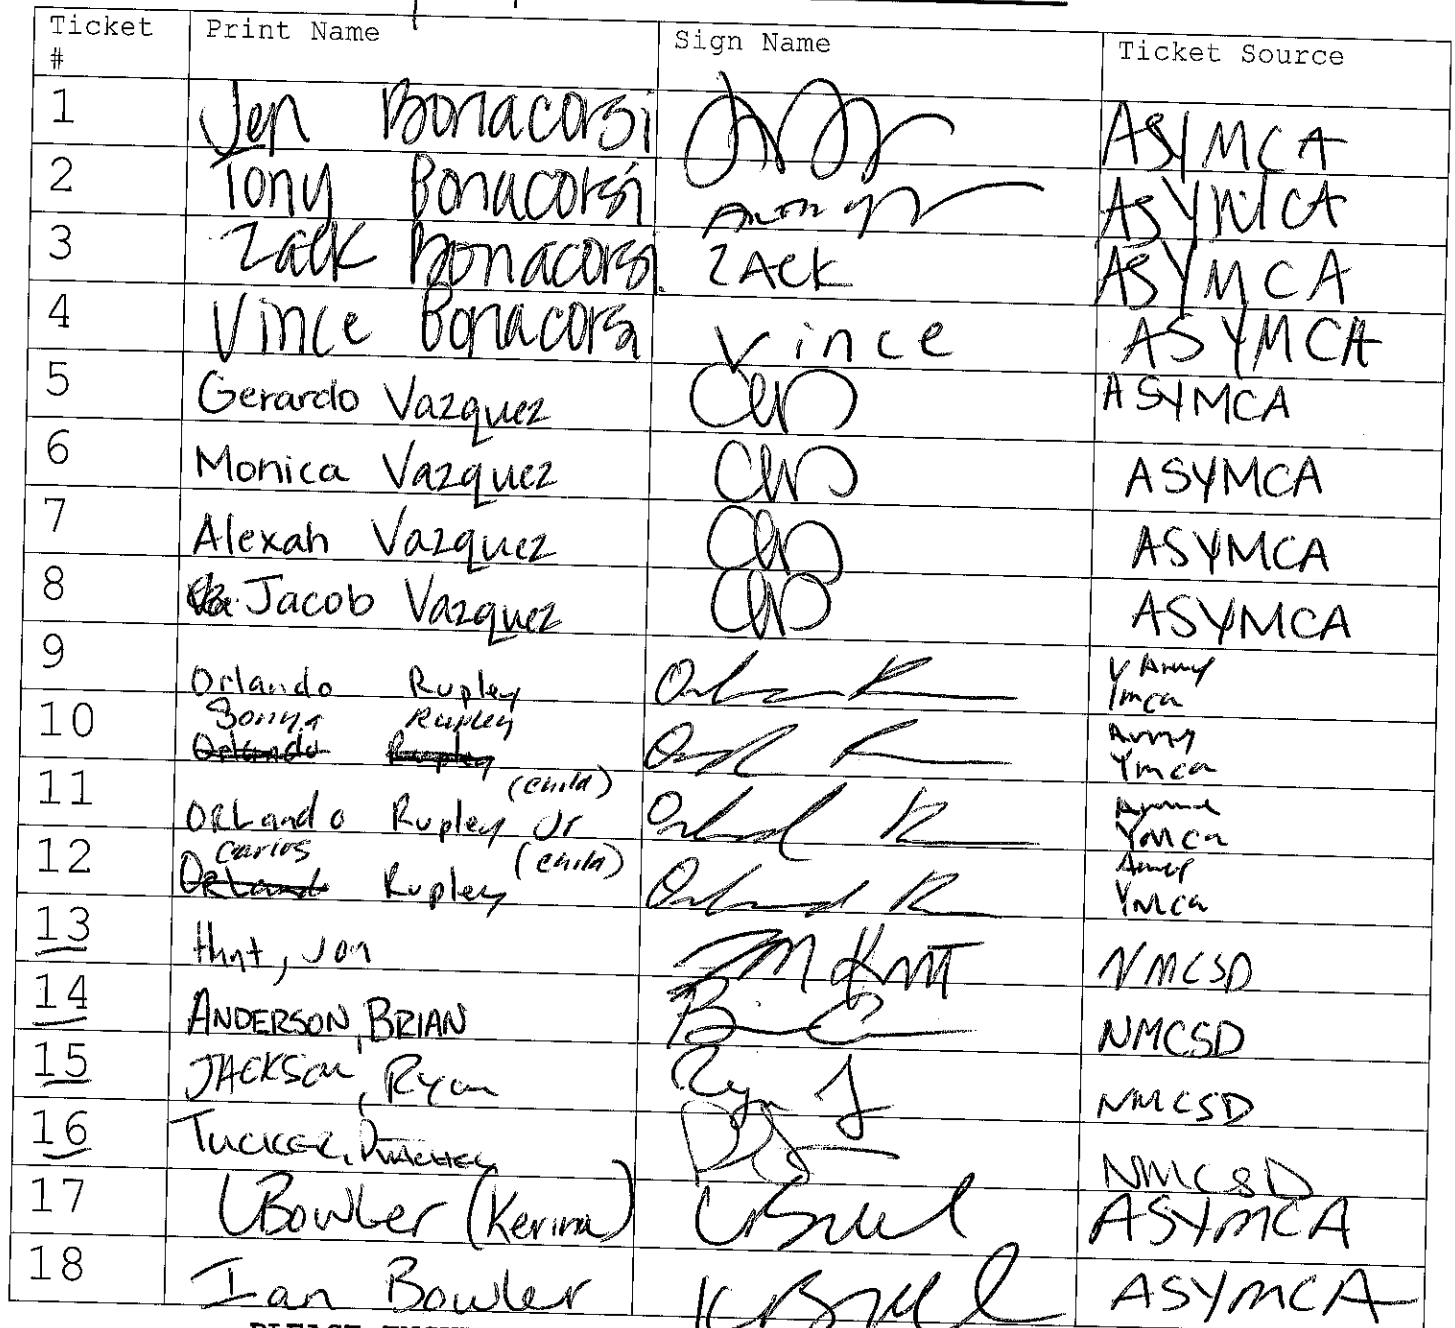 Ticket # Print Name Sign Name Ticket Source
1 Jen Bonacorsi ASYMCA
2 Tony Bonacorsi ASYMCA
3 Zack Bonacorsi ZACK ASYMCA
4 Vince Bonacorsi Vince ASYMCA
5 Gerardo Vazquez ASYMCA
6 Monica Vazquez ASYMCA
7 Alexah Vazquez ASYMCA
8 Jacob Vazquez ASYMCA
9 Orlando Rupley Army Ymca
10 Sonya Rupley Army Ymca
Orlando Rupley
11 (child)
ORLando Rupley Jr YMCa
12 Carlos (child)
ORLando Rupley Army YMCa
13 Hunt, Jon NMCSD
14 ANDERSON, BRIAN NMCSD
15 JACKSON, Ryan NMCSD
16 TUCKER, NMCSD
17 Bowler (Kerina) ASYMCA
18 Ian Bowler ASYMCA
PLEASE